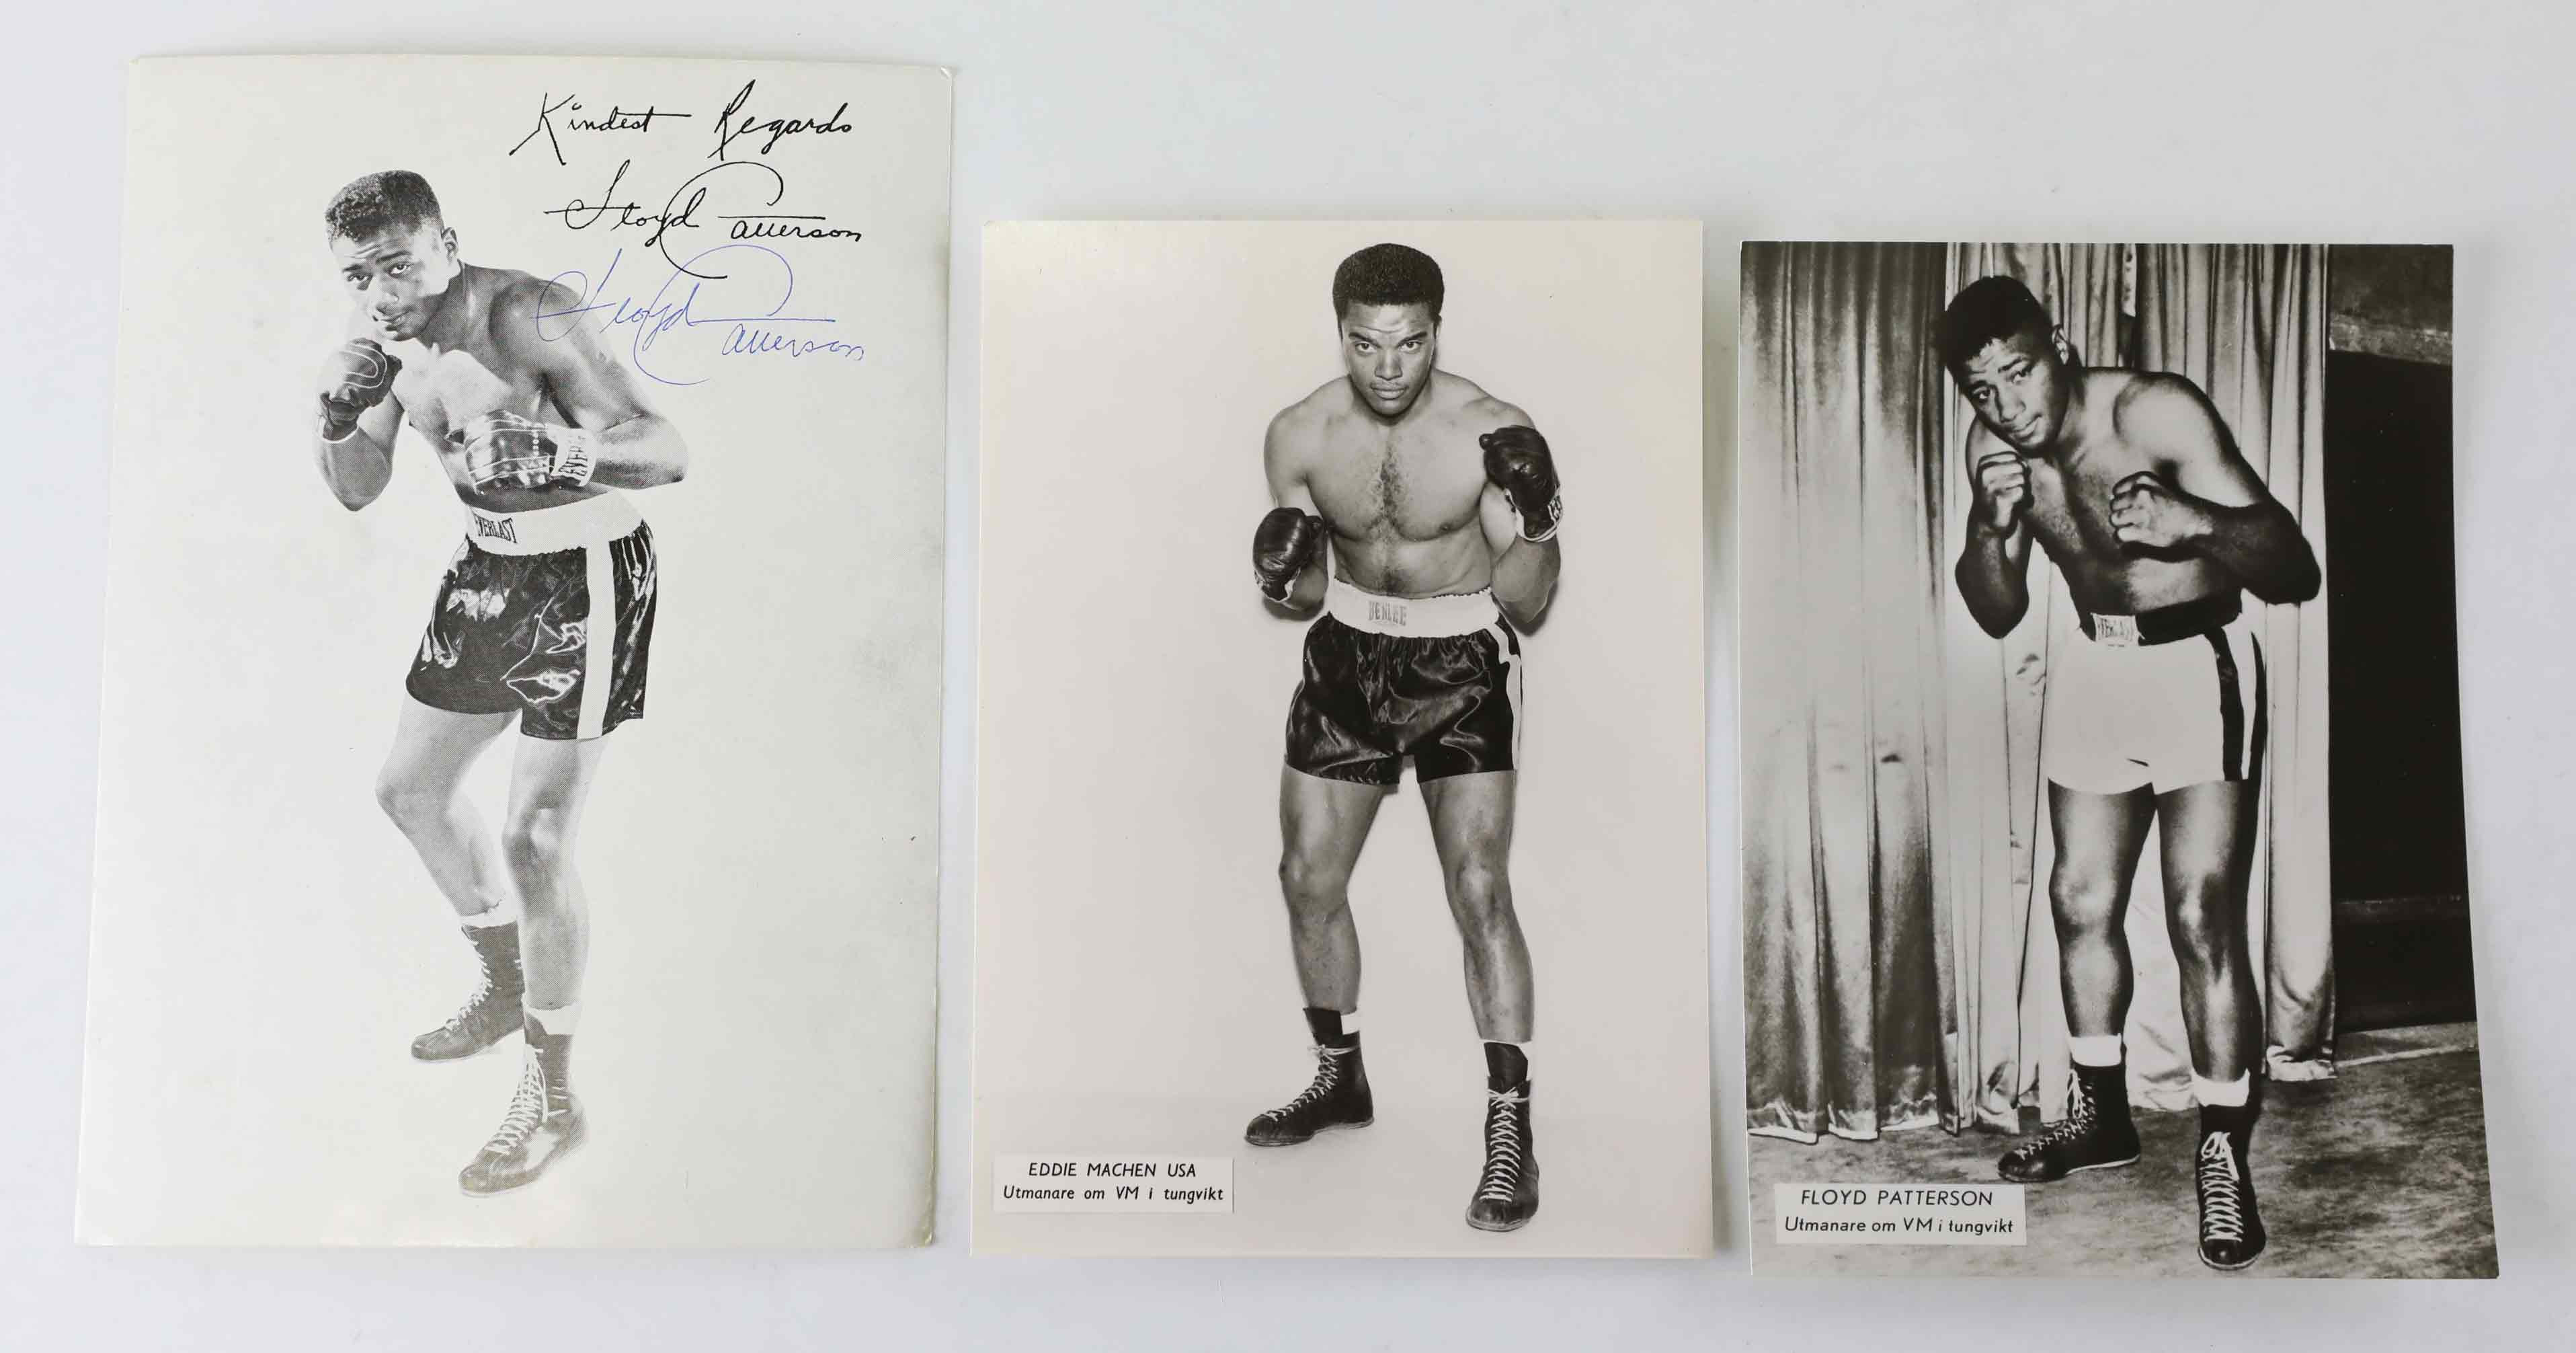 Kindest Regards
Floyd Patterson
Floyd Patterson
EVER
EVERLAST
BENLEE
EDDIE MACHEN USA
Utmanare om VM i tungvikt
FLOYD PATTERSON
Utmanare om VM i tungvikt